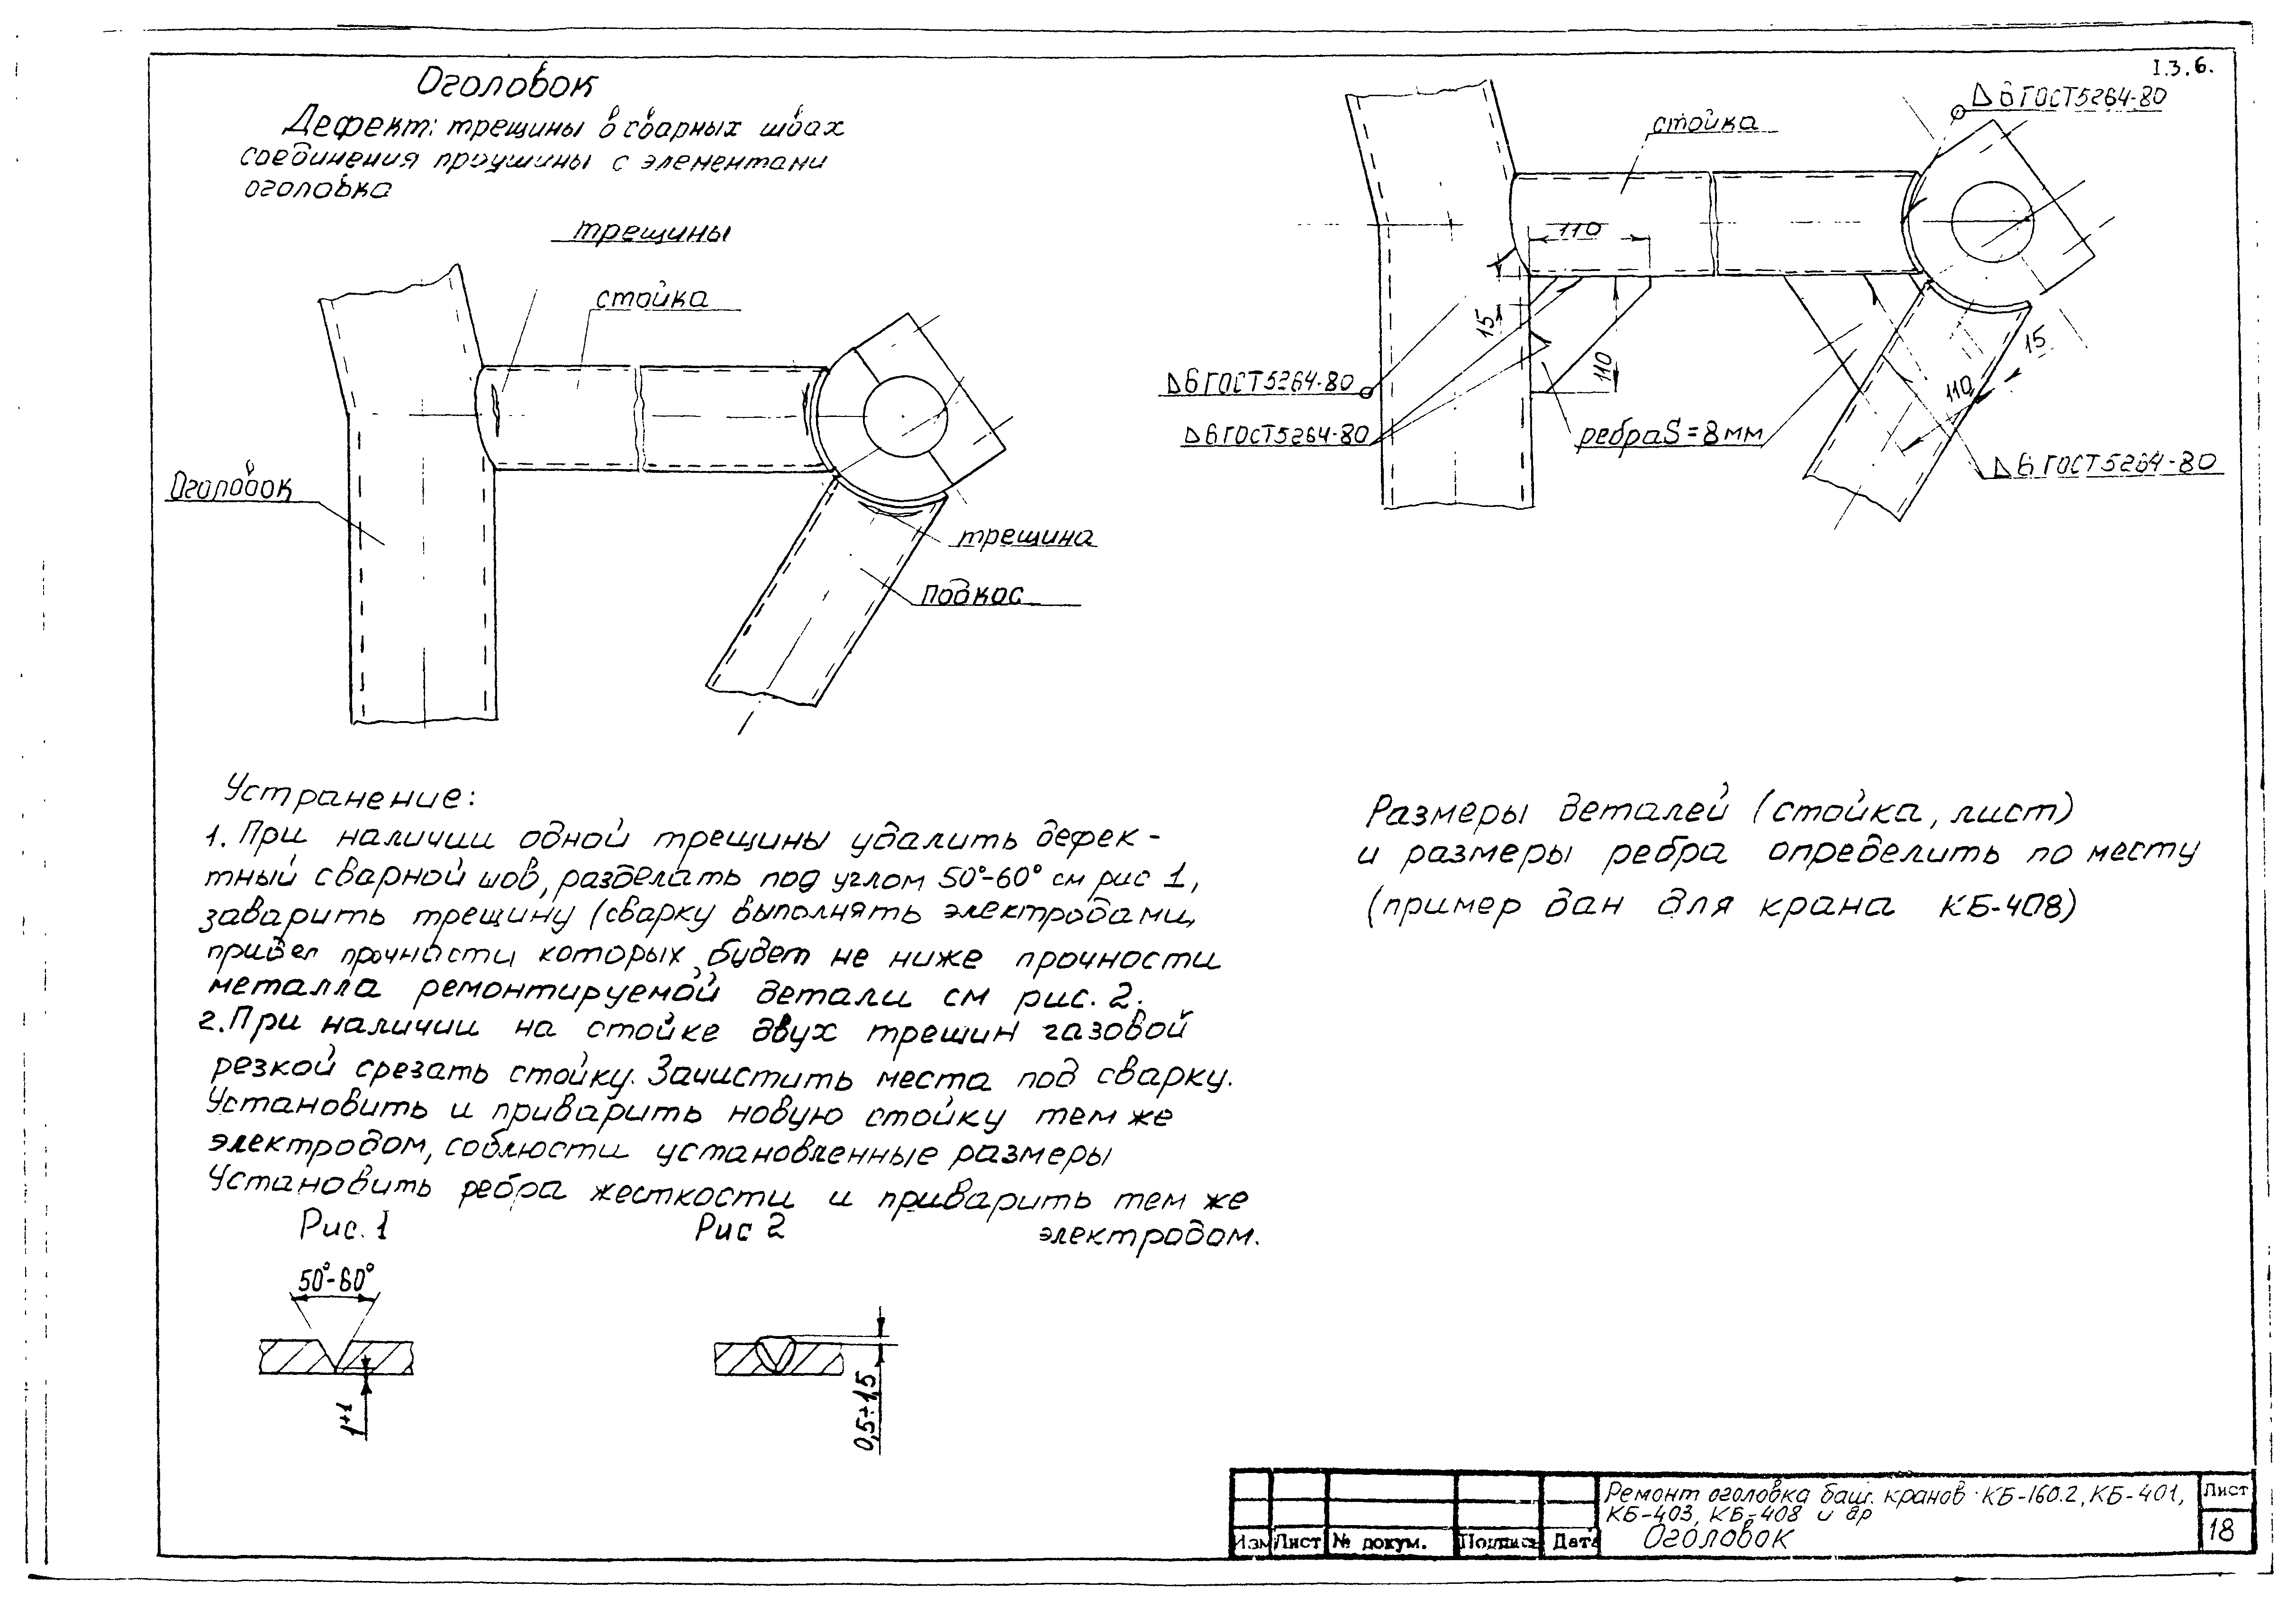 I.3.6.
Оголовок
Дефект: трещины в сварных швах
соединения проушины с элементами
оголовка
трещины
стойка
Оголовок
трещина
подкос
стойка
Δ6 ГОСТ 5264-80
110
15
110
Δ6 ГОСТ 5264-80
Δ6 ГОСТ 5264-80
ребра S=8мм
15
110
Δ6 ГОСТ 5264-80
Устранение:
1. При наличии одной трещины удалить дефек-
тный сварной шов, разделать под углом 50°-60° см рис 1,
заварить трещину (сварку выполнять электродами,
прочности которых будет не ниже прочности
металла ремонтируемой детали см рис. 2.
2. При наличии на стойке двух трешин газовой
резкой срезать стойку. Зачистить места под сварку.
Установить и приварить новую стойку тем же
электродом, соблюсти установленные размеры
Установить ребра жесткости и приварить тем же
электродом.
Рис. 1
50°-60°
1+1
Рис 2
0,5÷1,5
Размеры деталей (стойка, лист)
и размеры ребра определить по месту
(пример дан для крана КБ-408)
Изм Лист № докум. Подпись Дата
Ремонт оголовка баш. кранов КБ-160.2, КБ-401,
КБ-403, КБ-408 и др
Оголовок
Лист
18